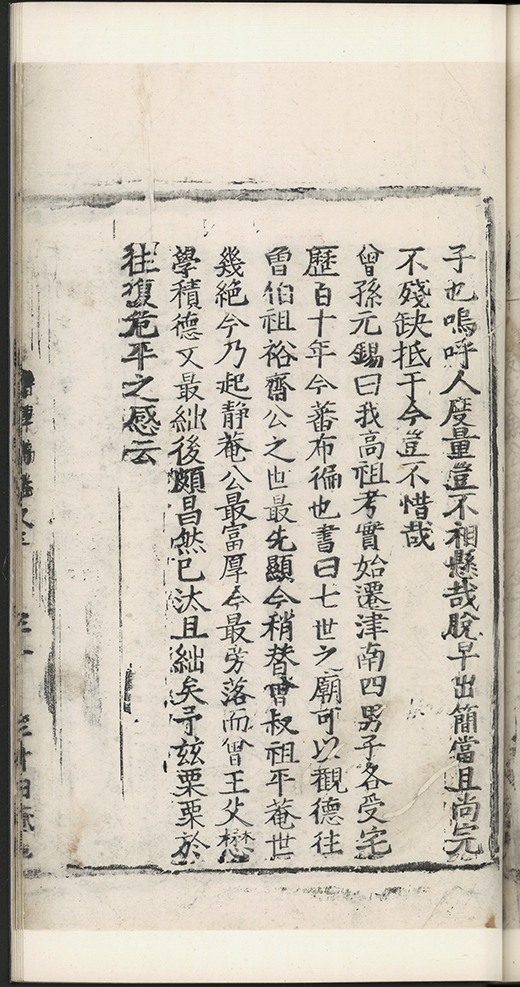 子也嗚呼人度量豈不相懸哉脫早出簡當且尚完
不殘缺抵于今豈不惜哉
曾孫元錫曰我高祖考實始遷津南四男子各受宅
歷百十年今蕃布徧也書曰七世之廟可以觀德往
曾伯祖裕齋公之世最先顯今稍替曾叔祖平菴世
幾絕今乃起靜菴公最富厚今最旁落而曾王父懋
學積德又最絀後頗昌然已汰且絀矣予玆栗栗於
往復危平之感云